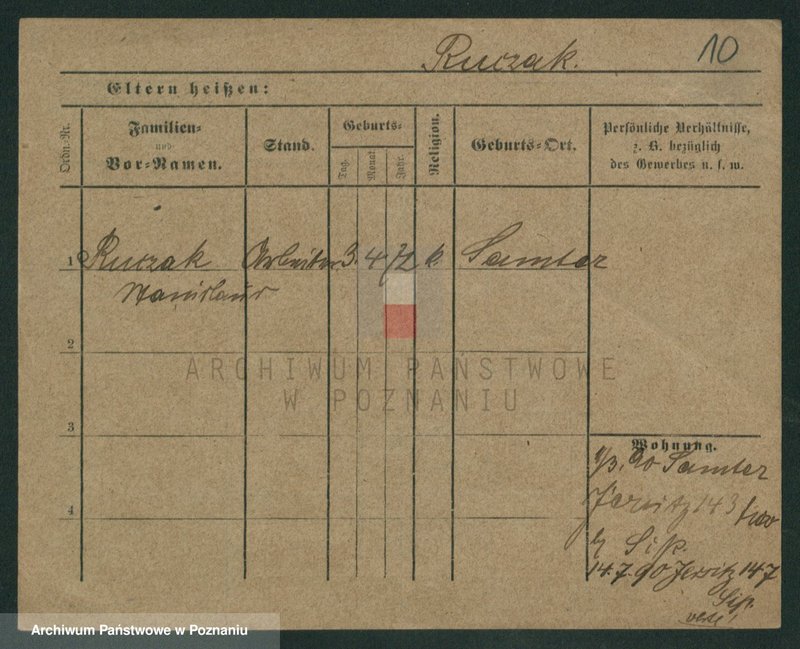 Ruczak.
10
Eltern heißen:
Ordn.-Nr.
Familien-
und
Vor-Namen.
Stand.
Geburts-
Tag.
Monat.
Jahr.
Religion.
Geburts-Ort.
Persönliche Verhältnisse,
z. B. bezüglich
des Gewerbes u. s. w.
1 Ruczak Arbeiter 3. 4 72 k. Samter
Stanislaus
2
3
4
ARCHIWUM PAŃSTWOWE
W POZNANIU
Wohnung.
90 Samter
Jersitz 143
14.7.90 Jersitz 147
Archiwum Państwowe w Poznaniu